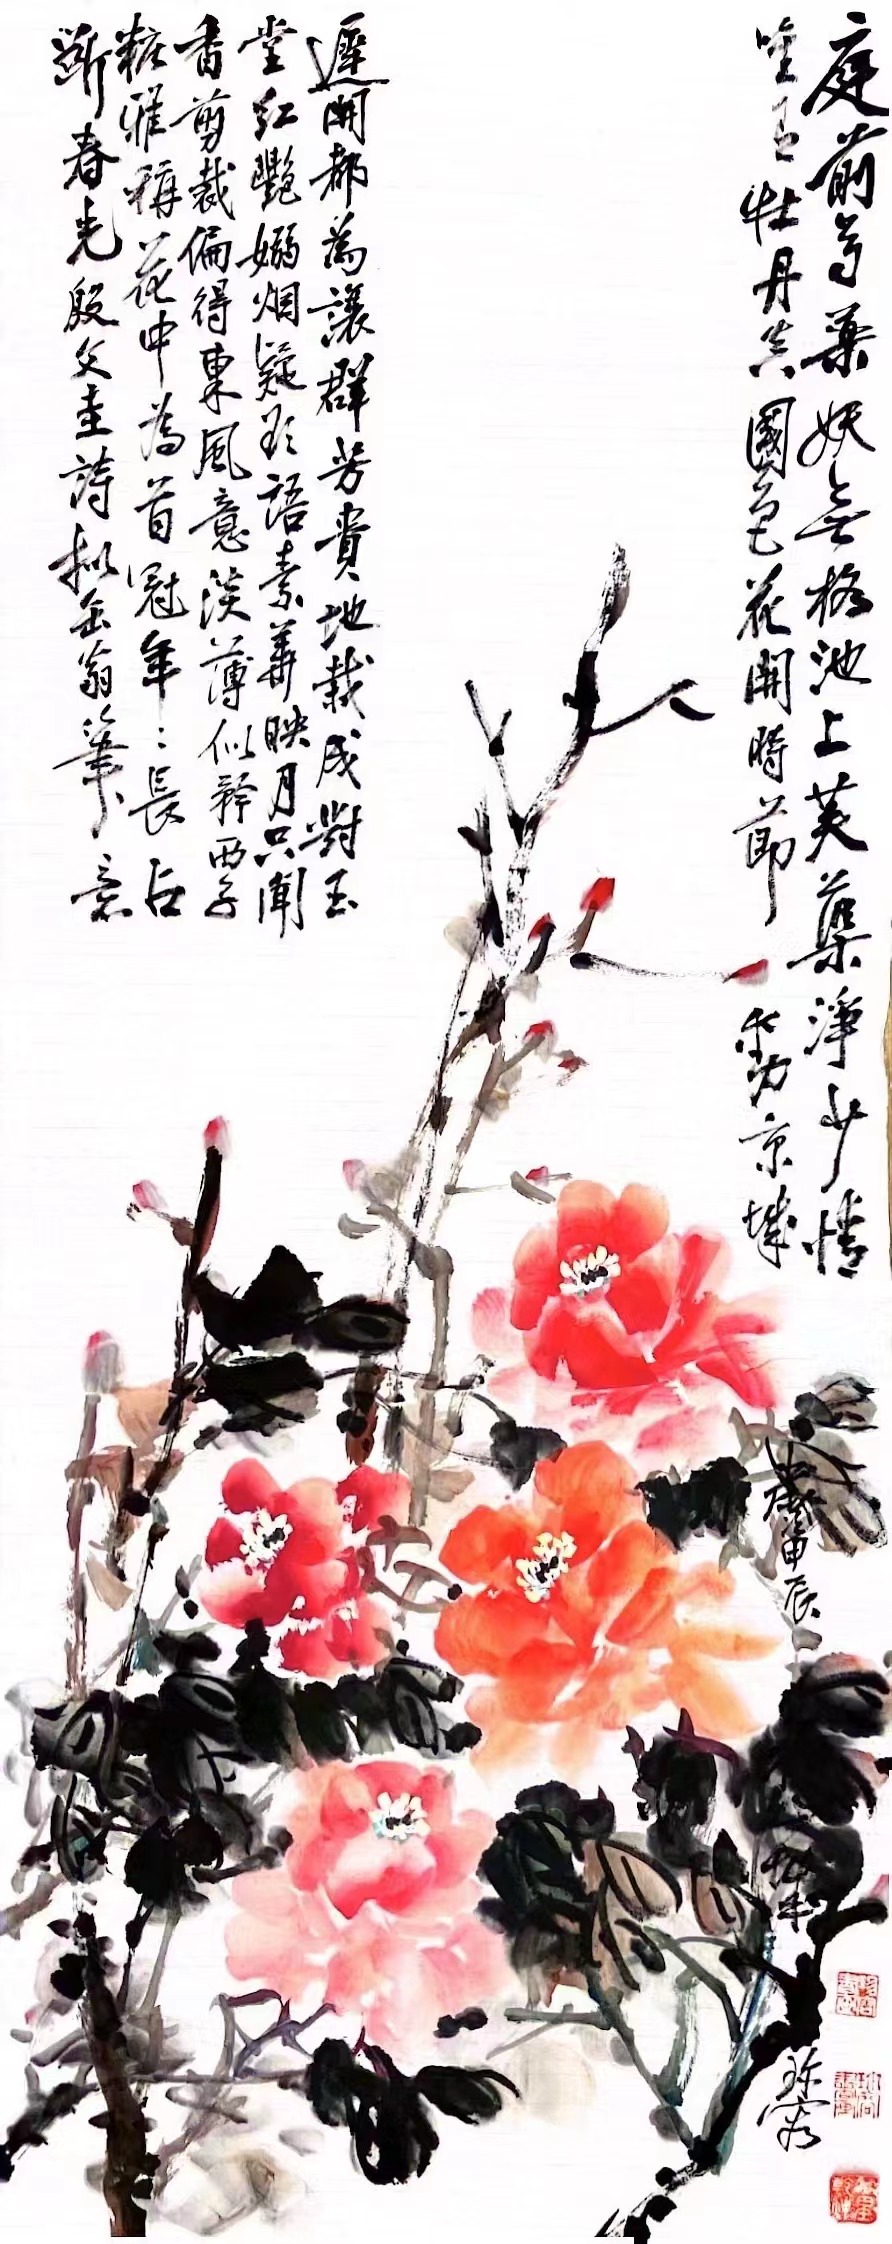 庭前芍藥妖無格池上芙蕖淨少情
唯有牡丹真國色花開時節
動京城
遲開都為讓群芳貴地栽成對玉
堂紅艷嫋烟疑欲語素華映月只聞
香剪裁偏得東風意淡薄似矜西子
粧雅稱花中為首冠年:長占
斷春光殷文圭詩拟缶翁筆意
歲甲辰